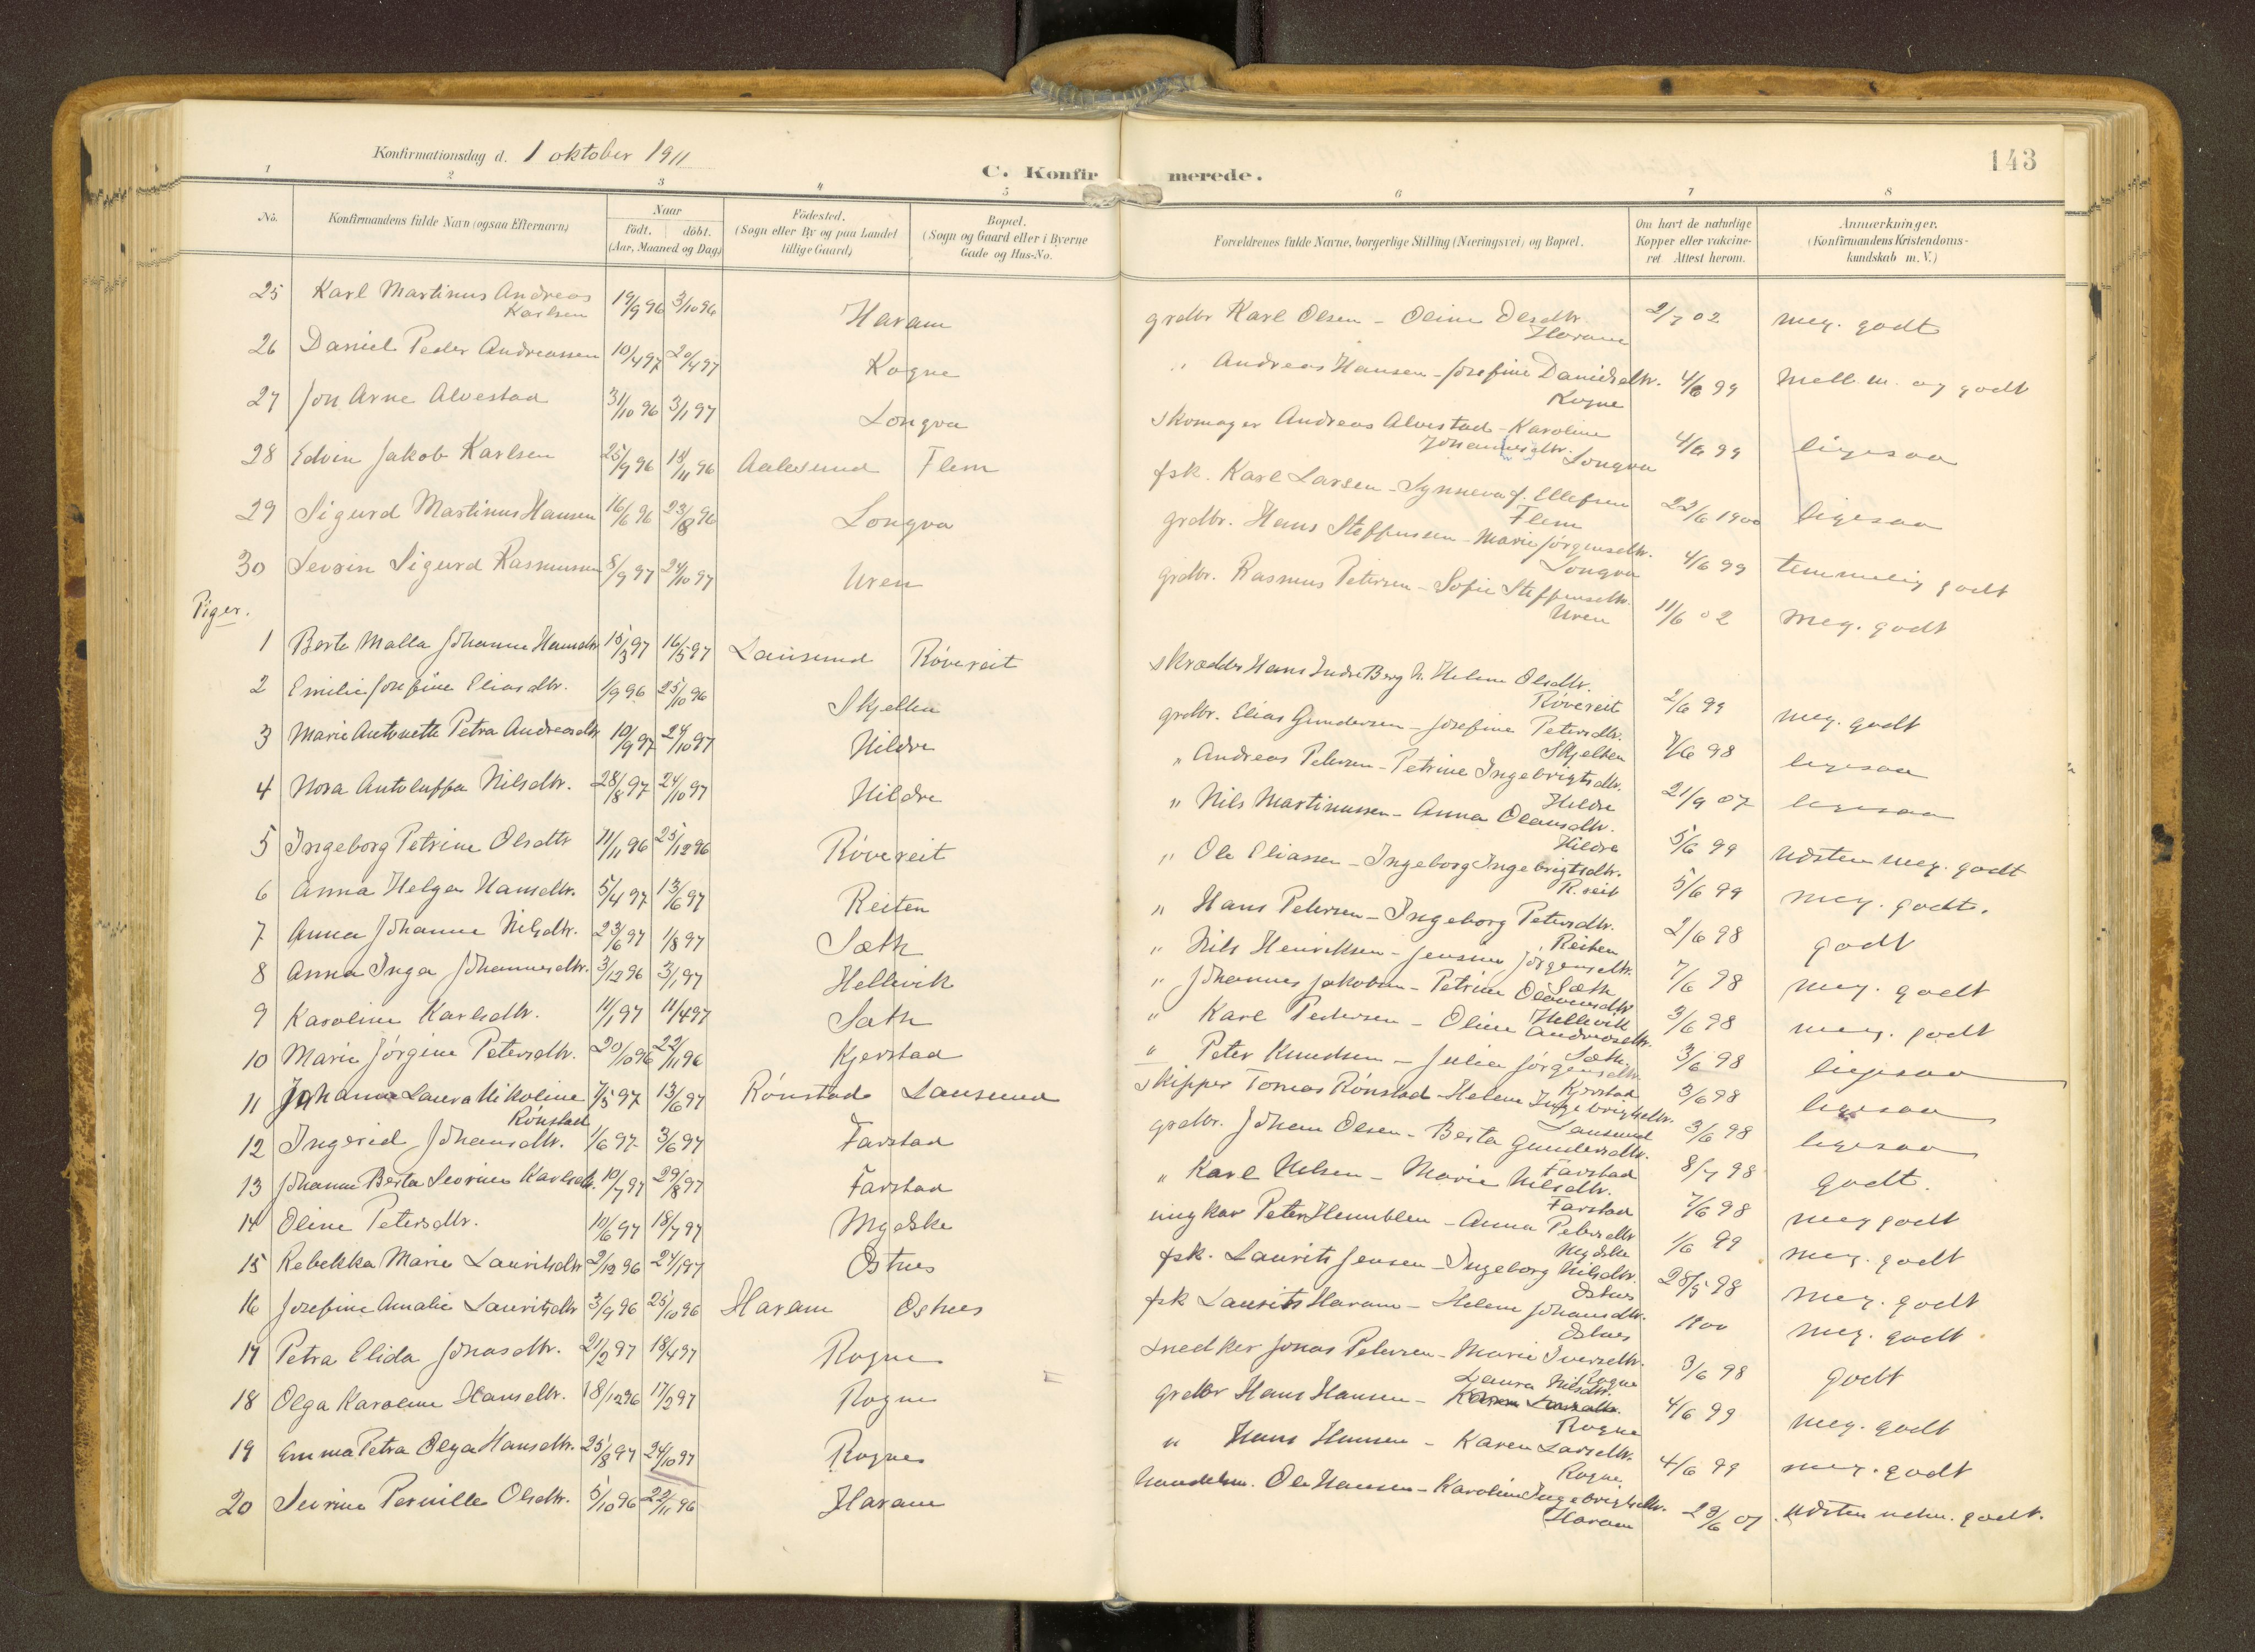 Konfirmationsdag d. 1 oktober 1911
C. Konfirmerede.
143
1 2 3 4 5 6 7 8
No. Konfirmandens fulde Navn (ogsaa Efternavn) Naar født. døbt. (Aar, Maaned og Dag) Fødested. (Sogn eller By og paa Landet tillige Gaard) Bopæl. (Sogn og Gaard eller i Byerne Gade og Hus-No. Forældrenes fulde Navne, borgerlige Stilling (Næringsvei) og Bopæl. Om havt de naturlige Kopper eller vakcineret Attest herom. Anmærkninger. (Konfirmandens Kristendomskundskab m. V.)
25 Karl Martinus Andreas Karlsen 19/9 96 3/10 96 Haram grdbr Karl Olsen - Oline Olsdtr Haram 2/7 02 meg. godt
26 Daniel Peder Andreassen 10/4 97 20/4 97 Rogne " Andreas Hansen - Josefine Danielsdtr. Rogne 4/6 99 mell. m. og godt
27 Jon Arne Alvestad 31/10 96 3/1 97 Longva skomager Andreas Alvestad - Karoline Johannesdtr. Longva 4/6 99 ligesaa
28 Edvin Jakob Karlsen 25/9 96 18/11 96 Aalesund Flem fsk. Karl Larsen - Synneva f. Ellefsen Flem 22/6 1900 ligesaa
29 Sigurd Martinus Hansen 16/6 96 23/8 96 Longva grdbr. Hans Steffensen - Marie Jørgensdtr. Longva 4/6 99 temmelig godt
30 Sevrin Sigurd Rasmussen 8/9 97 24/10 97 Uren grdbr. Rasmus Petersen - Sofie Steffensdtr. Uren 11/6 02 meg. godt
Piger.
1 Berte Malla Johanne Hansdtr 15/3 97 16/5 97 Lausund Røvereit skrædder Hans Indre Berg h. Helene Olsdtr. Røvereit 2/6 99 meg. godt
2 Emilie Josefine Eliasdtr. 1/9 96 25/10 96 Skjelten grdbr. Elias Gundersen - Josefine Petersdtr. Skjelten 7/6 98 ligesaa
3 Marie Antonette Petra Andreasdtr 10/9 97 24/10 97 Hildre " Andreas Petersen - Petrine Ingebrigtsdtr. Hildre 21/9 07 ligesaa
4 Nora Antoluffa Nilsdtr. 28/8 97 24/10 97 Hildre " Nils Martinussen - Anna Olausdtr. Hildre 5/6 99 Udsten meg. godt
5 Ingeborg Petrine Olsdtr 11/11 96 25/12 96 Røvereit " Ole Eliassen - Ingeborg Ingebrigtsdtr. R.reit 5/6 99 meg. godt.
6 Anna Helga Hansdtr. 5/4 97 13/6 97 Reiten " Hans Petersen - Ingeborg Petersdtr. Reiten 2/6 98 godt
7 Anna Johanne Nilsdtr. 23/6 97 1/8 97 Sæth " Nils Henriksen - Jensine Jørgensdtr. Sæth 7/6 98 meg. godt
8 Anna Inga Johannesdtr. 3/12 96 3/1 97 Hellevik " Johannes Jakobsen - Petrine Olavensdtr Hellevik 3/6 98 meg. godt
9 Karoline Karlsdtr. 11/1 97 11/4 97 Sæth " Karl Pedersen - Oline Andreasdtr. Sæth 3/6 98 ligesaa
10 Marie Jørgine Petersdtr. 20/10 96 22/11 96 Kjerstad " Peter Knudsen - Julie Jørgensdtr. Kjerstad 3/6 98 ligesaa
11 Johanna Laura Nikoline Rønstad 7/5 97 13/6 97 Rønstad Lausund skipper Tomas Rønstad - Helene Ingebrigtsdtr. Lausund 3/6 98 ligesaa
12 Ingerid Johansdtr. 1/6 97 3/6 97 Farstad grdbr. Johan Olsen - Berta Gundersdtr. Farstad 8/7 98 godt.
13 Johanne Berta Sevrine Karlsdtr. 10/7 97 29/8 97 Farstad " Karl Nilsen - Marie Nilsdtr. Farstad 7/6 98 meg godt
14 Oline Petersdtr. 10/6 97 18/7 97 Mydske ungkar Peter Humblen - Anna Petersdtr Mydske 1/6 99 meg. godt
15 Rebekka Marie Lauritsdtr 2/12 96 24/1 97 Østnes fsk. Laurits Jensen - Ingeborg Nilsdtr. Østnes 28/5 98 meg. godt
16 Josefine Amalie Lauritsdtr 3/9 96 25/10 96 Haram Østnes fsk Laurits Haram - Helene Johansdtr. Østnes 1900 meg. godt
17 Petra Elida Jonasdtr. 21/2 97 18/4 97 Rogne snedker Jonas Petersen - Marie Iversdtr. Rogne 3/6 98 godt
18 Olga Karoline Hansdtr. 18/12 96 17/2 97 Rogne grdbr Hans Hansen - Laura Nilsdtr. Rogne 4/6 99 meg. godt
19 Emma Petra Olga Hansdtr. 25/8 97 24/10 97 Rogne " Hans Hansen - Karen Larsdtr. Rogne 4/6 99 meg. godt
20 Sevrine Pernille Olsdtr. 5/10 96 22/11 96 Haram handelsm. Ole Hansen - Karoline Ingebrigtsdtr. Haram 28/6 07 Udsten udm. godt.